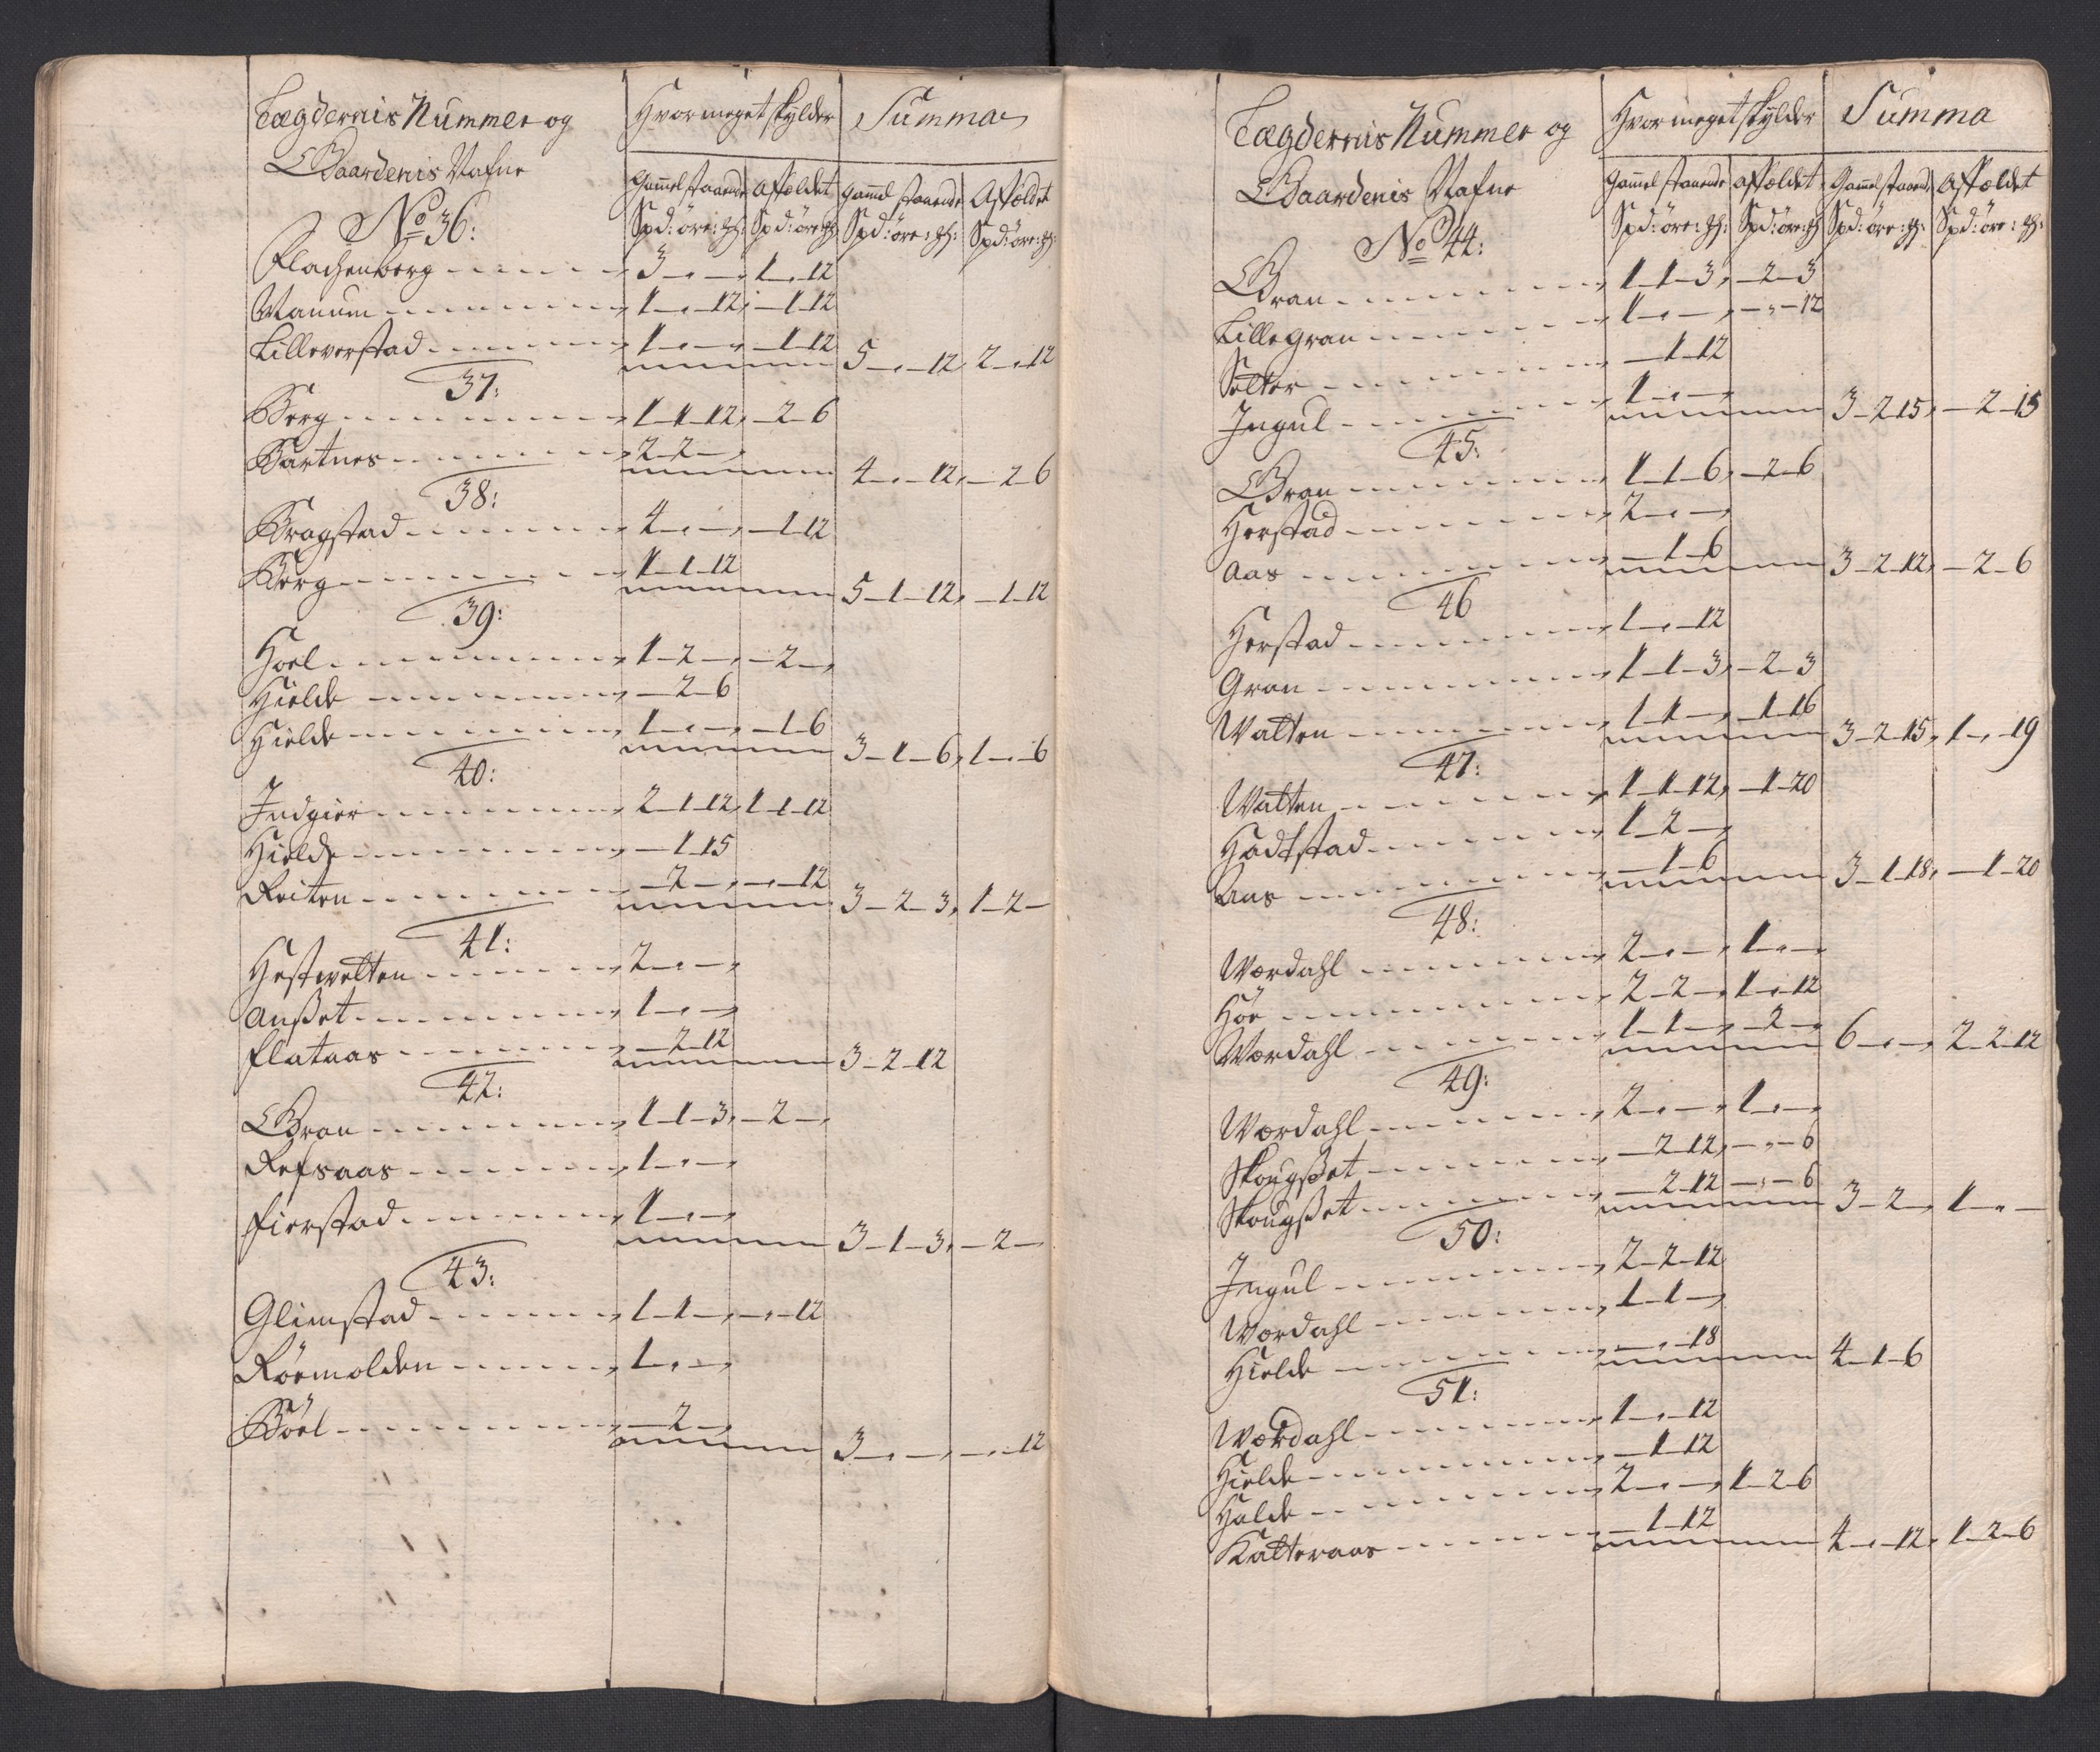 Lægdernis Nummer og
Gaardenis Nafne
Hvormeget skylder
Summa
Gam̄elstaaende
Affældet
Gam̄el staaende
Affældet
Spd: öre: : Spd: öre: Spd: öre: : Spd: öre:
No 36:
Flachenborg 3 - „ - „ 1 - „ 12
Manum 1 - „ - 12, - 1 - 12
Lilleverstad 1 - „ - „ - 1 - 12
5 - „ - 12, 2 - „ 12
37:
Berg 1 - 1 - 12, - 2 - 6
Bartnes 2 - 2 - „
4 - „ - 12, - 2 - 6
38:
Kragstad 4 - „ - „ - 1 - 12
Berg 1 - 1 - 12
5 - 1 - 12, - 1 - 12
39:
Hoel 1 - 2 - „ - 2 - „
Hielde - 2 - 6
Hielde 1 - „ - „ - 1 - 6
3 - 1 - 6, 1 - „ - 6
40:
Indgier 2 - 1 - 12, 1 - 1 - 12
Hielde - 1 - 15
Reiten - 2 - „ - „ - 12
3 - 2 - 3, 1 - 2 -
41:
Hestvetten 2 - „ - „
Ausßet 1 - „ - „
Flataas - 2 - 12
3 - 2 - 12
42:
Gran 1 - 1 - 3, - 2 - „
Refsaas 1 - „ - „
Fierstad 1 - „ - „
3 - 1 - 3, - 2 -
43:
Glimstad 1 - 1 - „ - „ - 12
Röemolden 1 - „ - „
Böel - 2 - „
3 - „ - „ - „ - 12
Lægdernis Nummer og
Gaardenis Nafne
Hvormeget skylder
Summa
Gam̄el staaende
Affældet
Gam̄elstaaende
Affældet
Spd: öre: : Spd: öre: Spd: öre: : Spd: öre: :
No 44:
Gran 1 - 1 - 3, - 2 - 3
Lillegran 1 - „ - „ - „ - 12
Selter - 1 - 12
Ingul 1 - „ - „
3 - 2 - 15, - 2 - 15
45:
Gran 1 - 1 - 6, - 2 - 6
Herstad 2 - „ - „
Aas - 1 - 6
3 - 2 - 12, - 2 - 6
46
Herstad 1 - „ - 12
Gran 1 - 1 - 3, - 2 - 3
Walten 1 - 1 - „ - 1 - 16
3 - 2 - 15, 1 - „ - 19
47:
Watten 1 - 1 - 12, - 1 - 20
Hadtstad 1 - 2 - „
Aas - 1 - 6
3 - 1 - 18, - 1 - 20
48:
Wærdahl 2 - „ - „ 1 - „ - „
Höe 2 - 2 - „ 1 - „ - 12
Wærdahl 1 - 1 - „ - 2 - „
6 - „ - „ 2 - 2 - 12
49:
Wærdahl 2 - „ - „ 1 - „ - „
Skougßet - 2 - 12, - „ - 6
Skougßet - 2 - 12 - „ - 6
3 - 2 - „ 1 - „ -
50:
Ingul 2 - 2 - 12
Wærdahl 1 - 1 - „
Hielde - „ - 18
4 - 1 - 6
51:
Wærdahl 1 - „ - 12
Hielde - 1 - 12
Halde 2 - „ - „ 1 - 2 - 6
Katteraas - 1 - 12
4 - „ - 12, 1 - 2 - 6